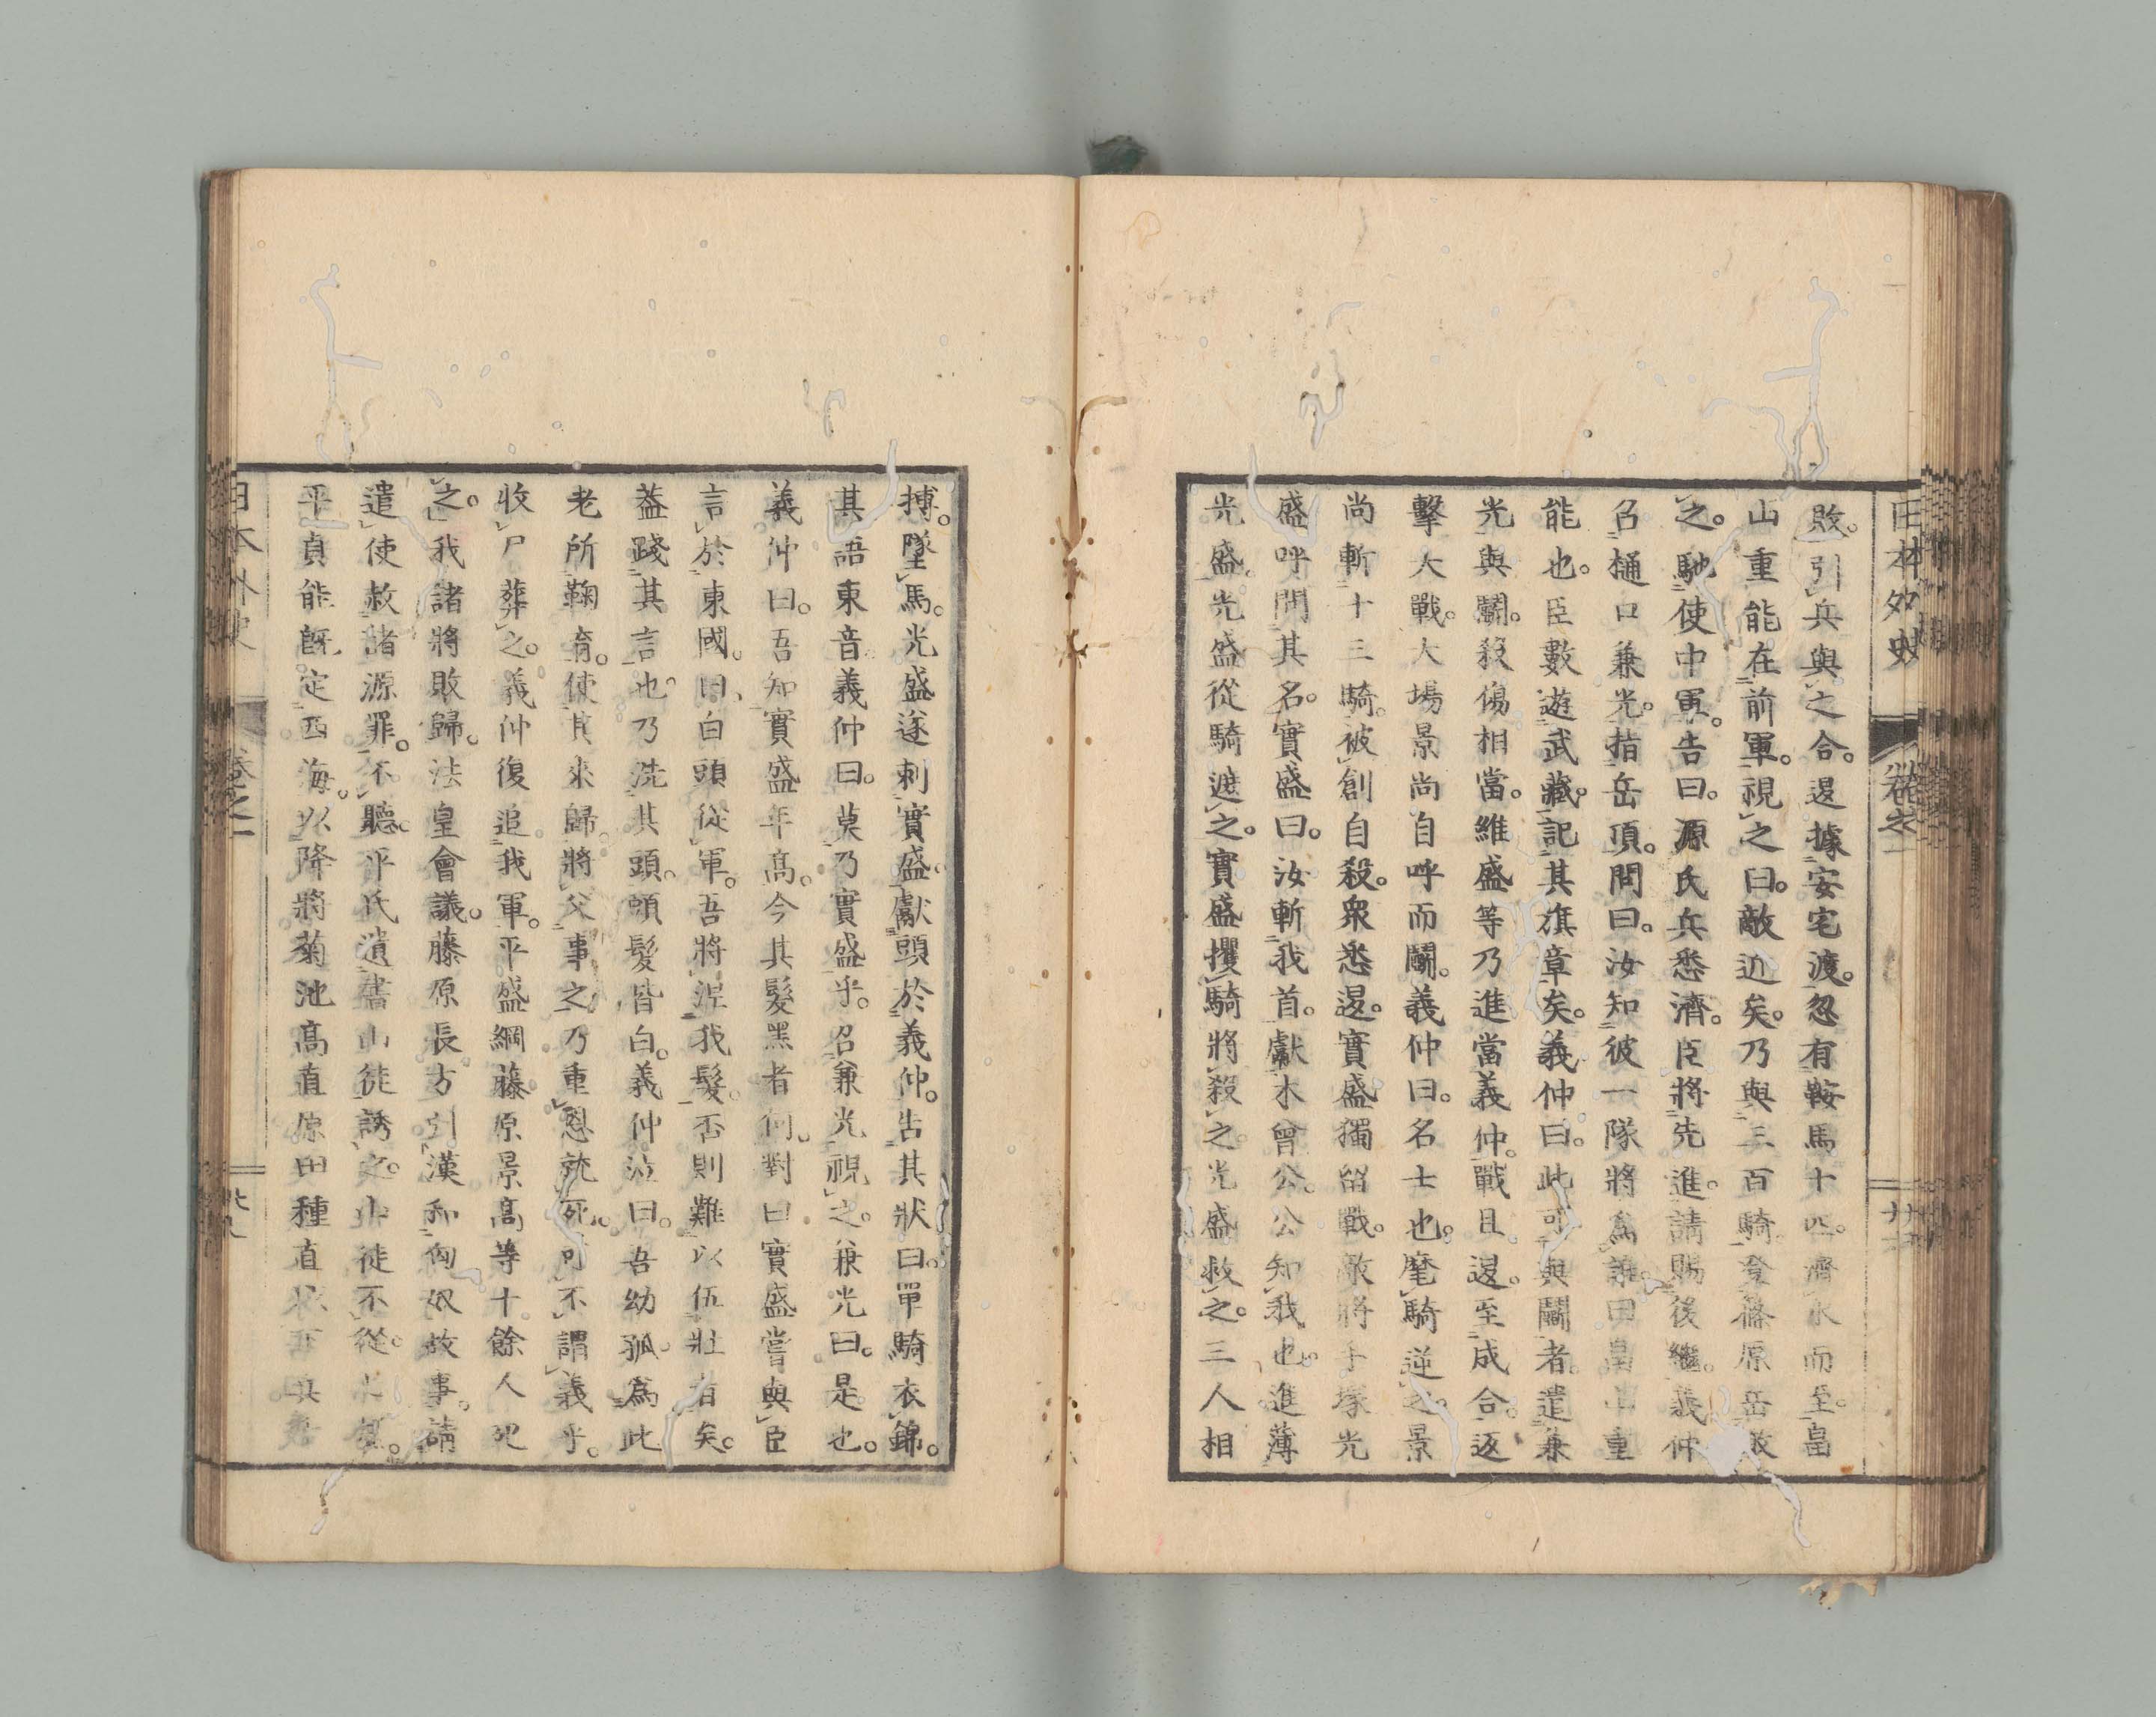 日本外史 卷之一
敗。引兵與之合。退據安宅渡。忽有鞍馬十匹。濟水而至。畠
山重能在前軍。視之曰。敵近矣。乃與三百騎登篠原岳。
之。馳使中軍。告曰。源氏兵悉濟。臣將先進。請賜後繼。義仲
召樋口兼光。指岳頂。問曰。汝知彼一隊將爲誰。曰畠山重
能也。臣數遊武藏。記其旗章矣。義仲曰。此可與鬬者。遣兼
光與鬬。殺傷相當。維盛等乃進當義仲。戰且退。至成合。返
擊大戰。大場景尚自呼而鬬。義仲曰。名士也。麾騎逆之。景
尚斬十三騎。被創自殺。衆悉退。實盛獨留戰。敵將手塚光
盛呼問其名。實盛曰。汝斬我首。獻木曾公。公知我也。進薄
光盛。光盛從騎遮之。實盛攫騎將殺之。光盛救之。三人相
搏。墜馬。光盛遂刺實盛。獻頭於義仲。告其狀曰。單騎衣錦。
其語東音。義仲曰。莫乃實盛乎。召兼光視之。兼光曰。是也。
義仲曰。吾知實盛年高。今其髮黑者何。對曰實盛嘗與臣
言於東國。曰、白頭從軍。吾將涅我髮。否則難以伍壯者矣。
蓋踐其言也。乃洗其頭。頭髮皆白。義仲泣曰。吾幼孤。爲此
老所鞠育。使其來歸。將父事之。乃重恩就死。可不謂義乎。
收尸葬之。義仲復追我軍。平盛綱藤原景高等十餘人死
之。我諸將敗歸。法皇會議。藤原長方引漢和匈奴故事。請
遣使赦諸源罪。不聽。平氏遺書山徒誘之。山徒不從。
平貞能既定西海。以降將菊池高直原田種直
日本外史 卷之一